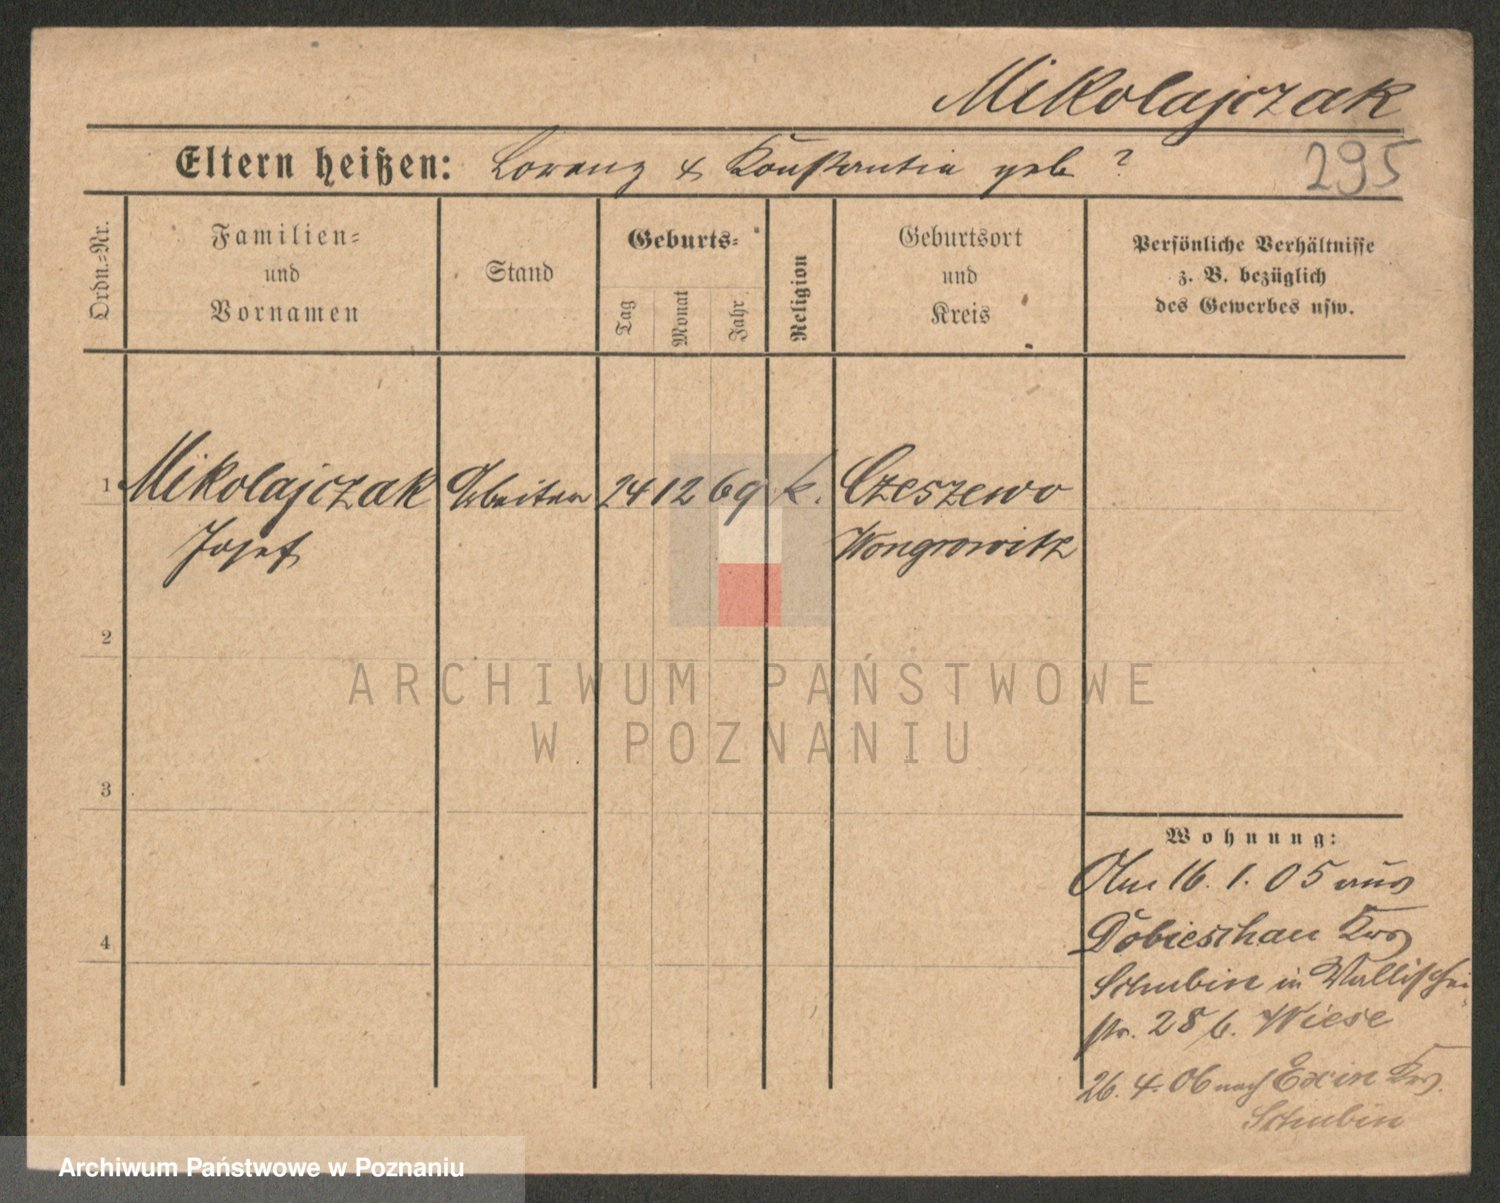 Mikolajczak
Eltern heißen: Lorenz & Konstantia geb ?
295
Ordn.=Nr.
Familien=
und
Vornamen
Stand
Geburts=
Tag
Monat
Jahr
Religion
Geburtsort
und
Kreis
Persönliche Verhältnisse
z. B. bezüglich
des Gewerbes usw.
1 Mikolajczak Arbeiter 24 12 69 k. Czeszewo
Josef Wongrowitz
2
3
4
ARCHIWUM PAŃSTWOWE
W POZNANIU
Wohnung:
Am 16. 1. 05 aus
Dobieschau Krs
Schubin in Wallischei-
str. 28 b. Wiese
26. 4. 06 nach Exin Krs.
Schubin
Archiwum Państwowe w Poznaniu